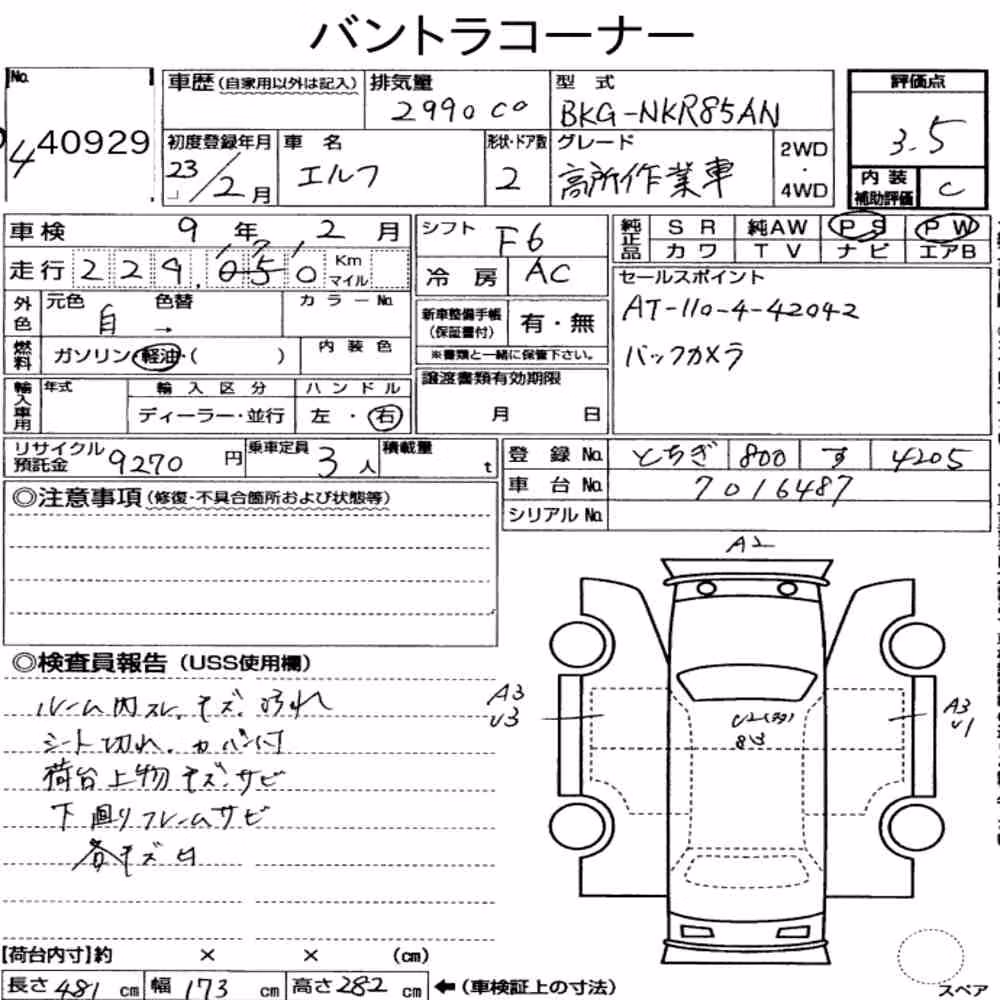 バントラコーナー
No. 4 40929
車歴(自家用以外は記入)
排気量 2990 cc
型式 BKG-NKR85AN
評価点 3.5
内装補助評価 C
初度登録年月 23/2月
車名 エルフ
形状・ドア数 2
グレード 高所作業車
2WD・4WD
車検 9年2月
走行 229,050 Km マイル
シフト F6
冷房 AC
純正品 SR 純AW PS PW
カワ TV ナビ エアB
外色 元色 白 色替 → カラーNo.
燃料 ガソリン・軽油・( )
内装色
新車整備手帳(保証書付) 有・無
※書類と一緒に保管下さい。
セールスポイント
AT-110-4-42042
バックカメラ
輸入車用 年式 輸入区分 ハンドル
ディーラー・並行 左・右
譲渡書類有効期限
月 日
リサイクル預託金 9270円
乗車定員 3人
積載量 t
登録No. とちぎ 800 す 4205
車台No. 7016487
シリアルNo.
◎注意事項(修復・不具合箇所および状態等)
A2
◎検査員報告(USS使用欄)
ルーム内スレ、キズ、汚れ
シート切れ、カバー付
荷台上物キズ、サビ
下廻りフレームサビ
各キズ凹
A3
U3
A3
U1
U2
【荷台内寸】約 × × (cm)
長さ 481 cm 幅 173 cm 高さ 282 cm ←(車検証上の寸法)
スペア